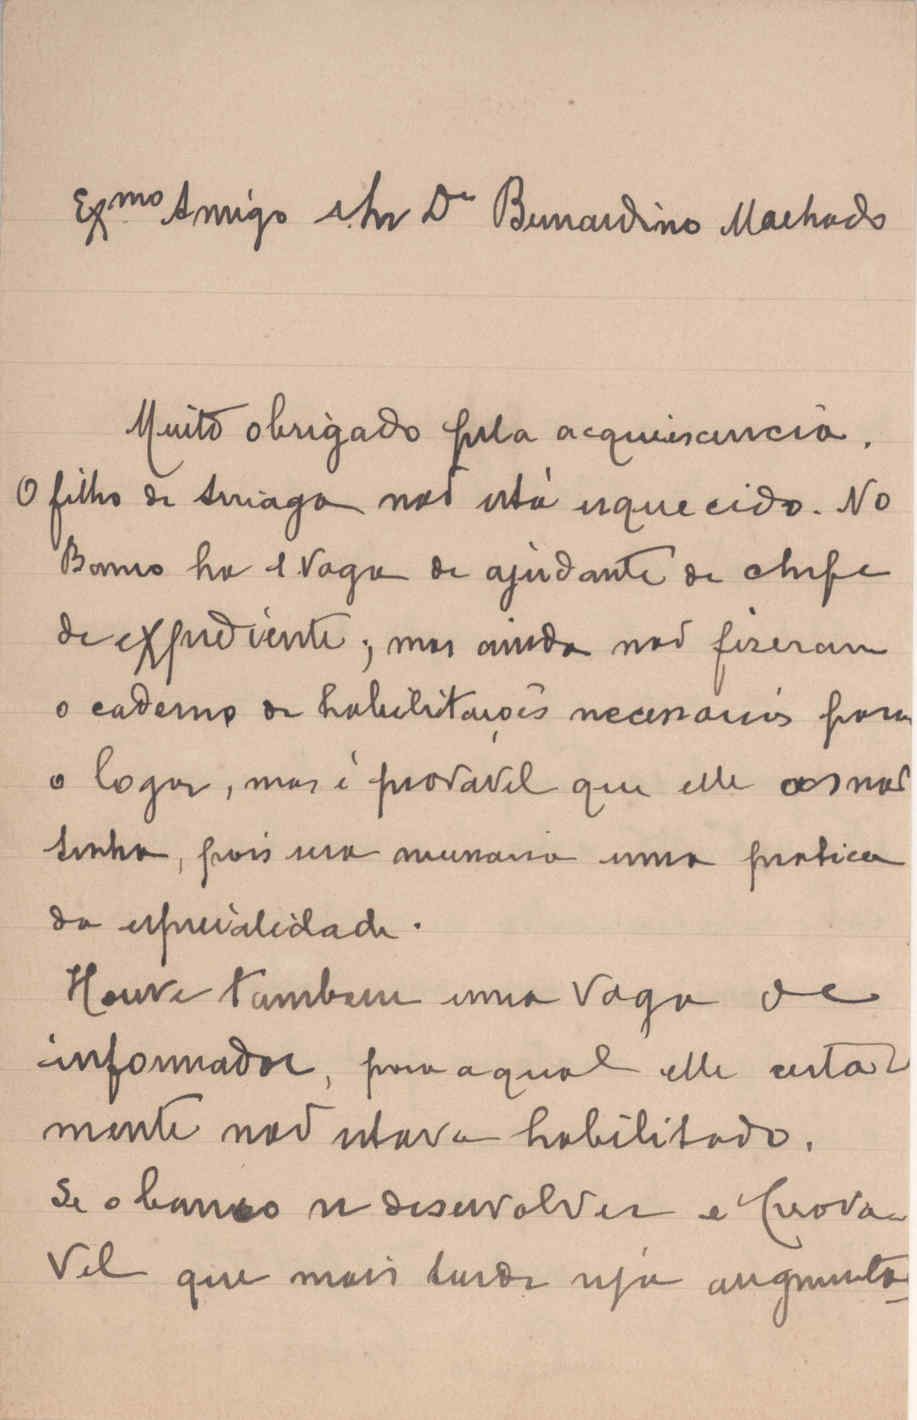 Exmo Amigo e Snr Dr Bernardino Machado
Muito obrigado pela acquiescencia.
O filho de Arriaga não está esquecido. No
Banco ha 1 vaga de ajudante de chefe
de expediente; mas ainda não fizeram
o caderno de habilitações necessarias para
o logar, mas é provavel que elle as não
tenha, pois era necessaria uma pratica
da especialidade.
Houve tambem uma vaga de
informador, para a qual elle certa
mente não estava habilitado.
Se o banco se desenvolver é prova
vel que mais tarde seja augmenta